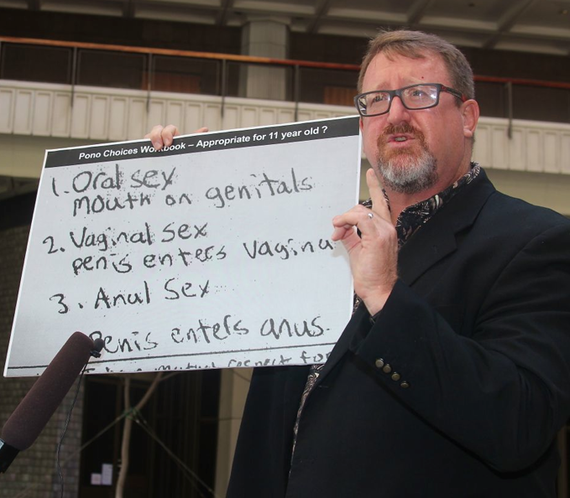 Pono Choices Workbook – Appropriate for 11 year old ?
1. Oral sex
mouth on genitals
2. Vaginal sex
penis enters vagina
3. Anal sex
Penis enters anus.